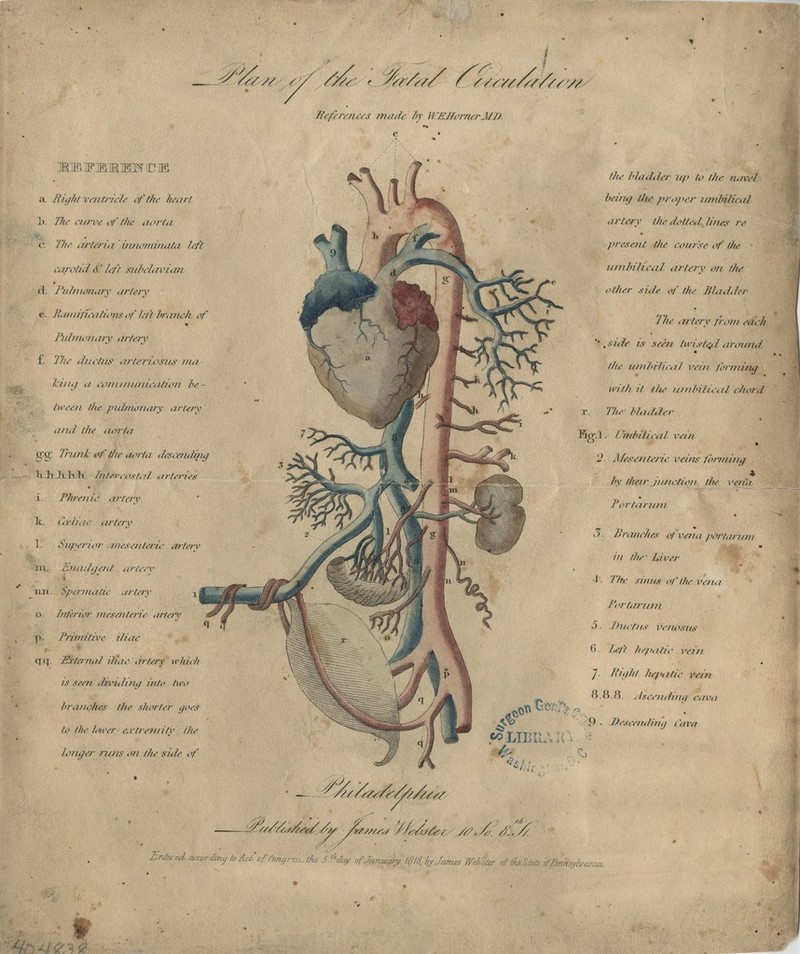 Plan of the Fœtal Circulation
References made by W.E.Horner M.D.
REFERENCE
a. Right ventricle of the heart
b. The curve of the aorta
c. The arteria innominata left
carotid & left subclavian
d. Pulmonary artery
e. Ramifications of left branch of
Pulmonary artery
f. The ductus arteriosus ma-
king a communication be-
tween the pulmonary artery
and the aorta
gg. Trunk of the aorta descending
h.h.h.h.h. Intercostal arteries
i. Phrenic artery
k. Cœliac artery
l. Superior mesenteric artery
m. Emulgent artery
nn. Spermatic artery
o. Inferior mesenteric artery
p. Primitive iliac
qq. External iliac artery which
is seen dividing into two
branches the shorter goes
to the lower extremity the
longer runs on the side of
the bladder up to the navel
being the proper umbilical
artery the dotted lines re
present the course of the
umbilical artery on the
other side of the Bladder
The artery from each
side is seen twisted around
the umbilical vein forming
with it the umbilical chord
r. The bladder
Fig.1. Umbilical vein
2. Mesenteric veins forming
by their junction the vena
Portarum
3. Branches of vena portarum
in the Liver
4. The sinus of the vena
Portarum
5. Ductus venosus
6. Left hepatic vein
7. Right hepatic vein
8.8.8. Ascending cava
9. Descending Cava
c
9
b
f
d
g
e
a
h
h
h
h
h
i
7
8
k
3
l
m
2
l
g
n
n
1
q
q
o
r
p
q
q
Surgeon Genl's
LIBRARY
Washington, D.C.
Philadelphia
Published by James Webster 10 So. 8th St.
Entered according to Act of Congress the 5th day of January 1818 by James Webster of the State of Pennsylvania.
404838